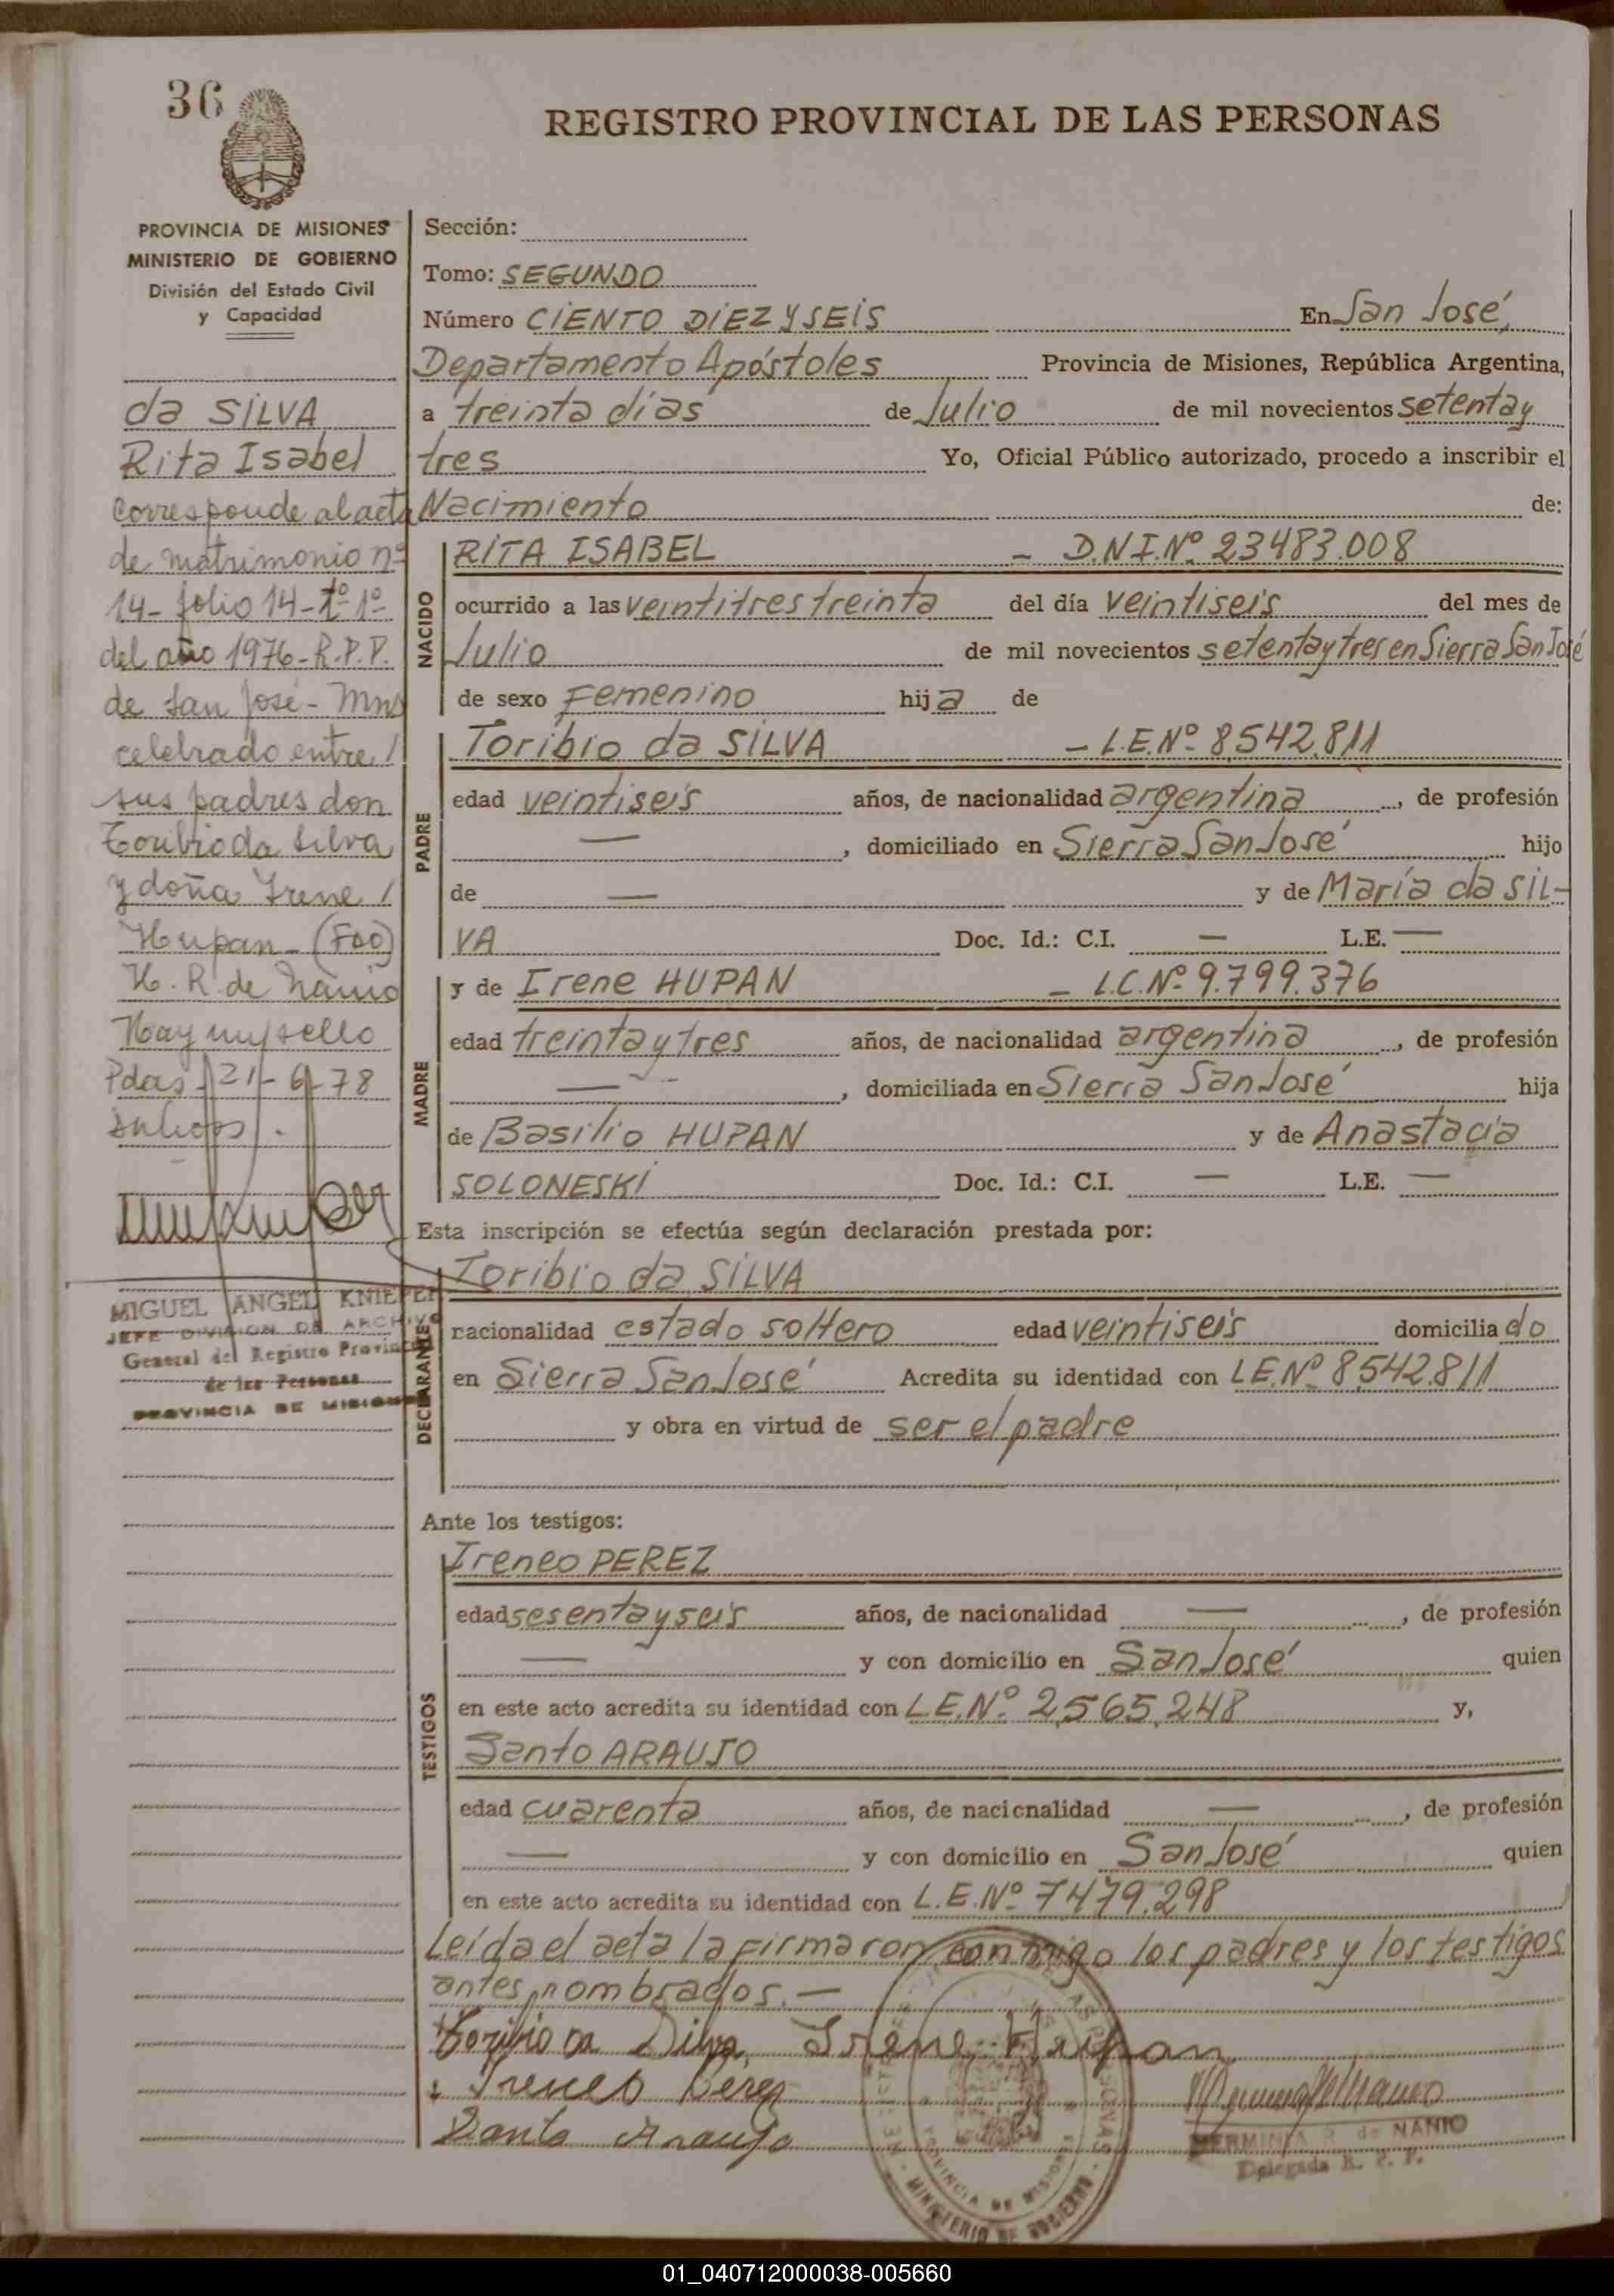 36
REGISTRO PROVINCIAL DE LAS PERSONAS
PROVINCIA DE MISIONES
MINISTERIO DE GOBIERNO
División del Estado Civil
y Capacidad
da SILVA
Rita Isabel
Corresponde al acta
de matrimonio nº
14- folio 14- Tº 1º
del año 1976- R.P.P.
de San José - Mns
celebrado entre /
sus padres don
Toribio da Silva
y doña Irene /
Hupan - (Fdo)
H. R. de Nanio
Hay un/ sello
Pdas - 21 - 6 - 78
MIGUEL ANGEL KNIEPER
JEFE DIVISION DE ARCHIVO
General del Registro Provincial
de las Personas
PROVINCIA DE MISIONES
Sección:
Tomo: SEGUNDO
Número CIENTO DIEZ Y SEIS En San José,
Departamento Apóstoles Provincia de Misiones, República Argentina,
a treinta días de Julio de mil novecientos setenta y
tres Yo, Oficial Público autorizado, procedo a inscribir el
Nacimiento de:
NACIDO
RITA ISABEL - D.N.I.Nº 23483.008
ocurrido a las veintitres treinta del día veintiseis del mes de
Julio de mil novecientos setenta y tres en Sierra San José
de sexo Femenino hija de
PADRE
Toribio da SILVA - L.E.Nº 8.542.811
edad veintiseis años, de nacionalidad argentina, de profesión
—, domiciliado en Sierra San José hijo
de — y de María da SIL-
VA Doc. Id.: C.I. — L.E. —
MADRE
y de Irene HUPAN - L.C.Nº 9.799.376
edad treinta y tres años, de nacionalidad argentina, de profesión
—, domiciliada en Sierra San José hija
de Basilio HUPAN y de Anastacia
SOLONESKI Doc. Id.: C.I. — L.E. —
Esta inscripción se efectúa según declaración prestada por:
DECLARANTE
Toribio da SILVA
nacionalidad estado soltero edad veintiseis domiciliado
en Sierra San José Acredita su identidad con L.E.Nº 8.542.811
y obra en virtud de ser el padre
Ante los testigos:
TESTIGOS
Ireneo PEREZ
edad sesenta y seis años, de nacionalidad —, de profesión
— y con domicilio en San José quien
en este acto acredita su identidad con L.E.Nº 2.565.248 y,
Santo ARAUJO
edad cuarenta años, de nacionalidad —, de profesión
— y con domicilio en San José quien
en este acto acredita su identidad con L.E.Nº 7.479.298
Leída el acta la firmaron conmigo los padres y los testigos
antes nombrados.—
Toribio da Silva, Irene Hupan
Ireneo Perez
Santo Araujo
HERMINIA R. de NANIO
Delegada R. P. P.
PROVINCIA DE MISIONES
MINISTERIO DE GOBIERNO
01_040712000038-005660